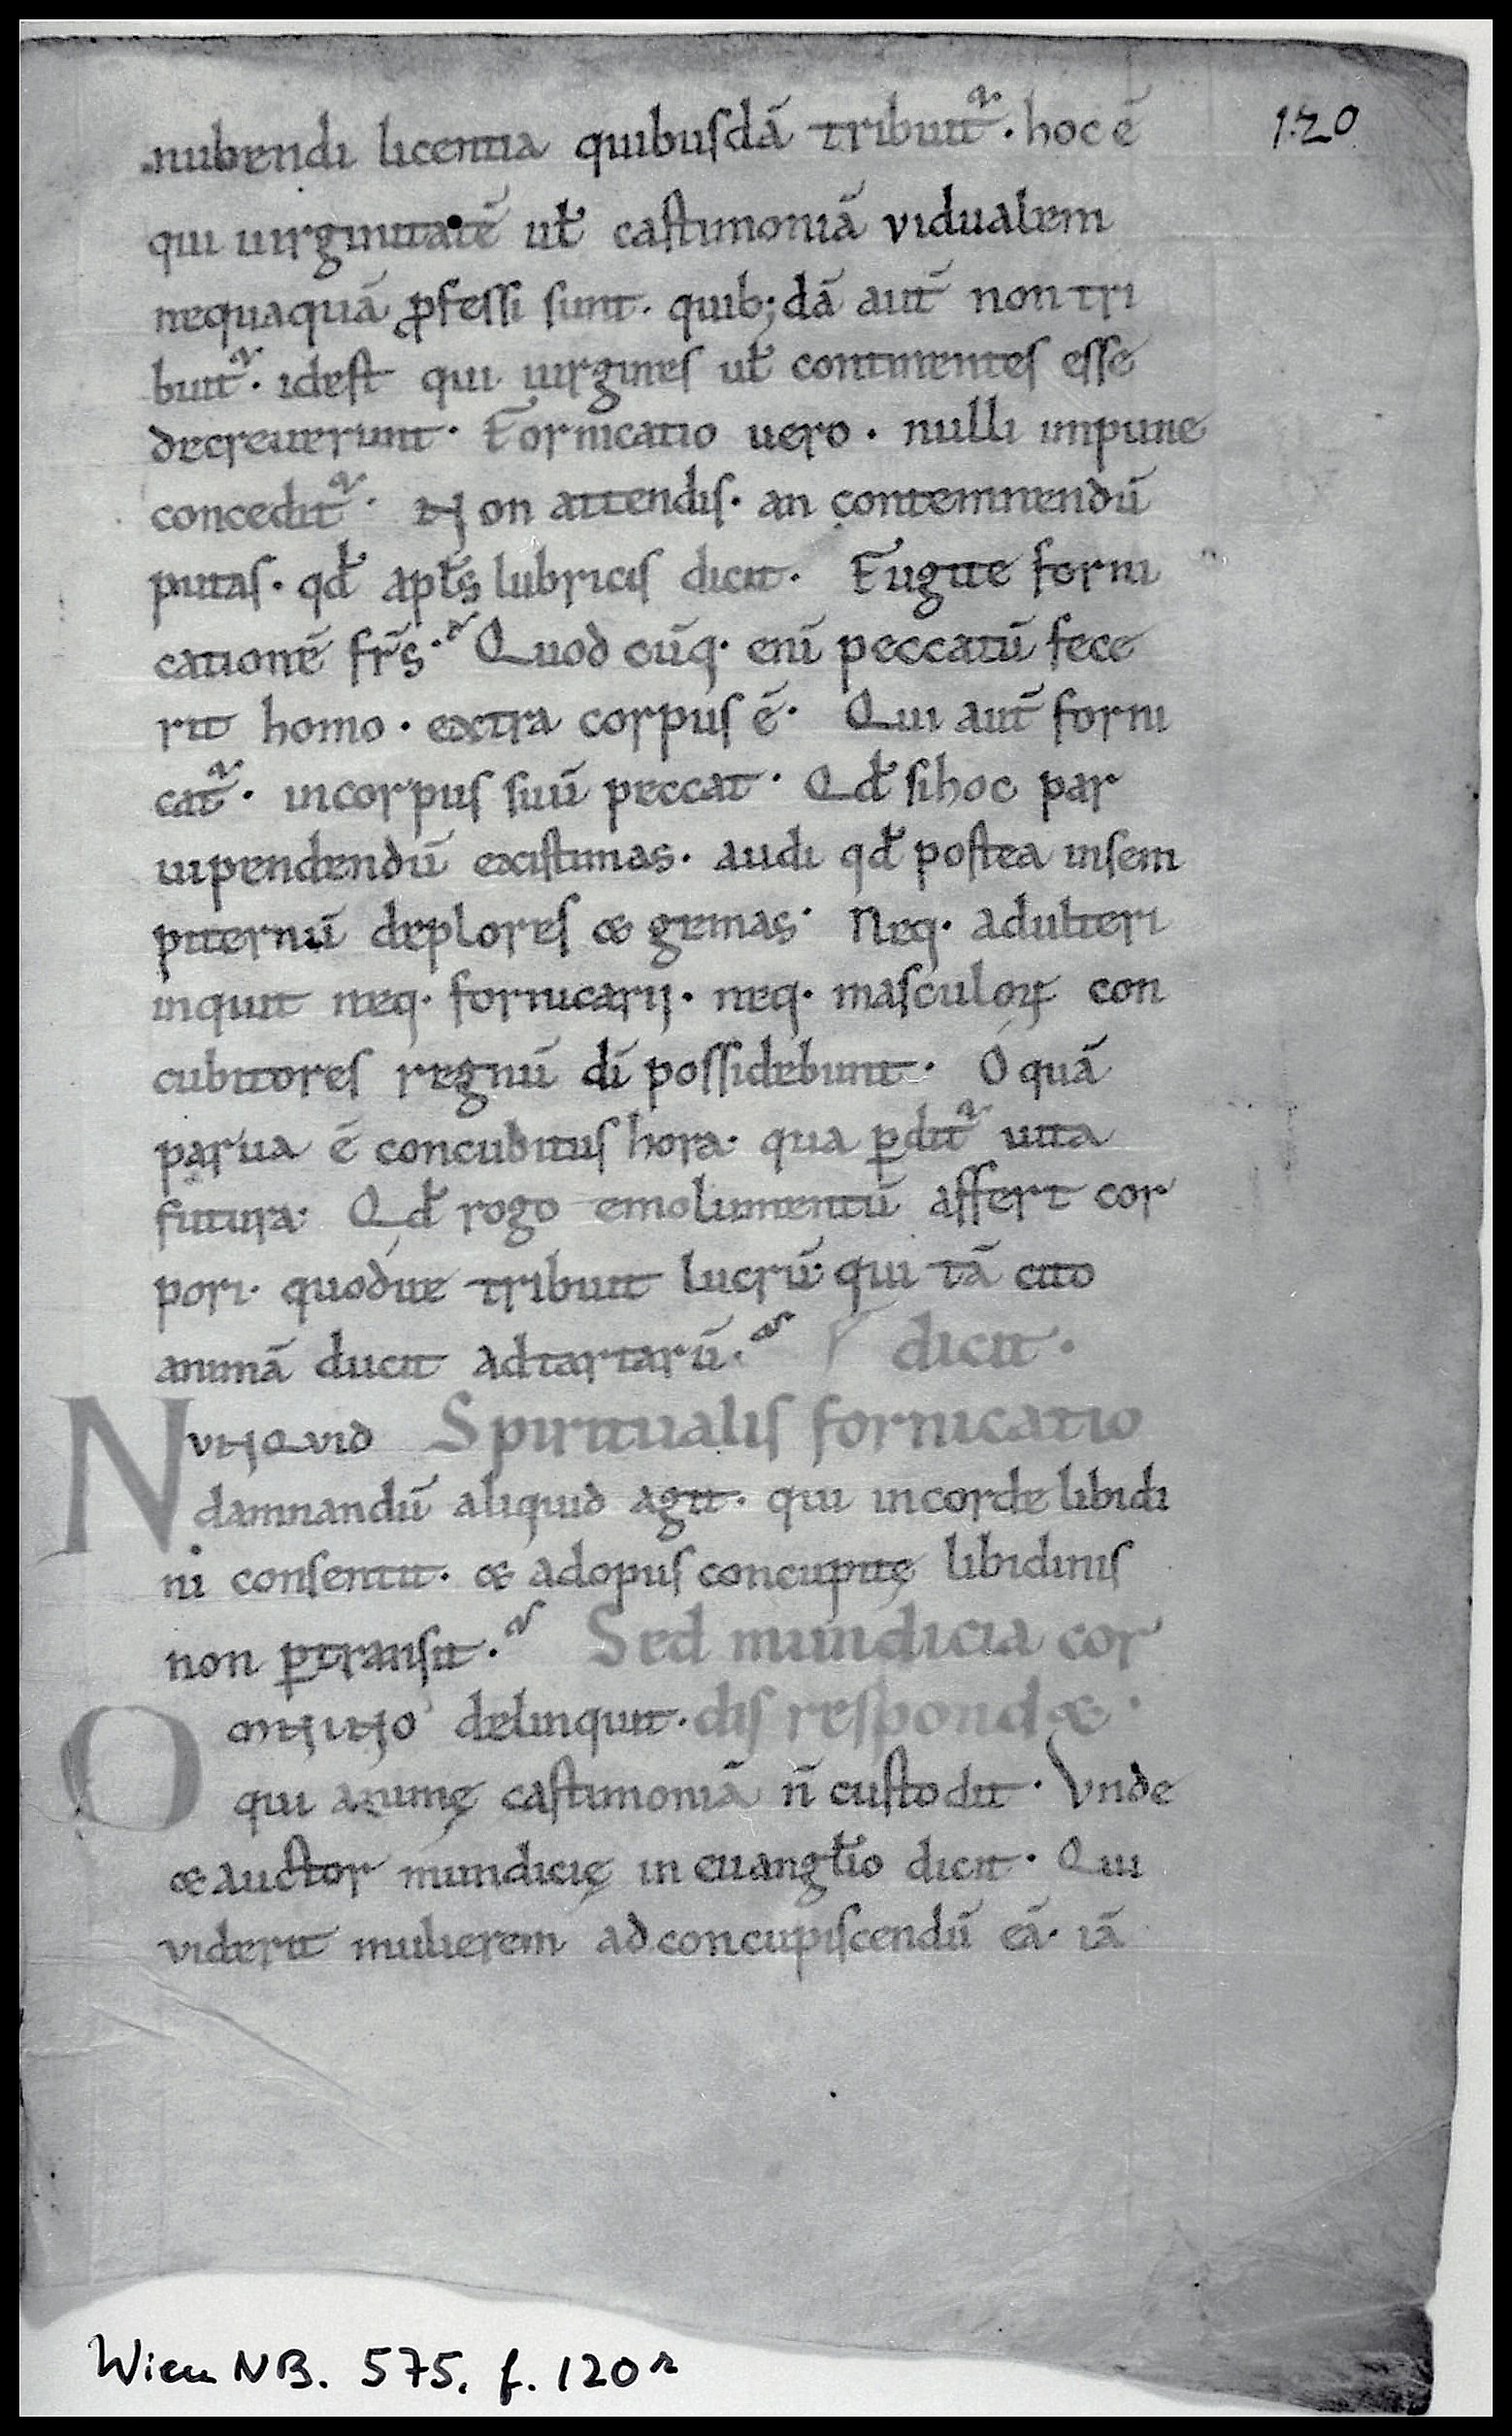 nubendi licentia quibusdā tribuit᷑ · hoc ē
120
qui uirginitatē uł castimoniā vidualem
nequaquā ꝓfessi sunt · quib; dā aut̄ non tri
buit᷑ · idest qui uirgines uł continentes esse
decreuerunt · Fornicatio uero · nulli impune
concedit᷑ · Non attendis · an contemnendū
putas · qđ apłs lubricis dicit · Fugite forni
cationē fr̄s · Quod cūq · enī peccatū fece
rit homo · extra corpus ē · Qui aut̄ forni
cat᷑ · incorpus suū peccat · Qđ sihoc par
uipendendū existimas · audi qđ postea insem
piternū deplores & gemas · Neq · adulteri
inquit neq · fornicarij · neq · masculoꝝ con
cubitores regnū dī possidebunt · Ó quā
parua ē concubitus hora · qua ꝑdit᷑ uita
futura · Qđ rogo emolimentū affert cor
pori · quodue tribuit lucrū · qui tā cito
animā ducit adtartarū · dicit ·
NVNQVID Spiritualis fornicatio
damnandū aliquid agit · qui incorde libidi
ni consentit · & adopus concupitę libidinis
non ꝑtransit · Sed mundicia cor
OMNINO delinquit · dis respond& ·
qui animę castimoniā n̄ custodit · Vnde
& auctor mundicię in euangłio dicit · Qui
viderit mulierem ad concupiscendū eā · iā
Wien NB. 575. f. 120r